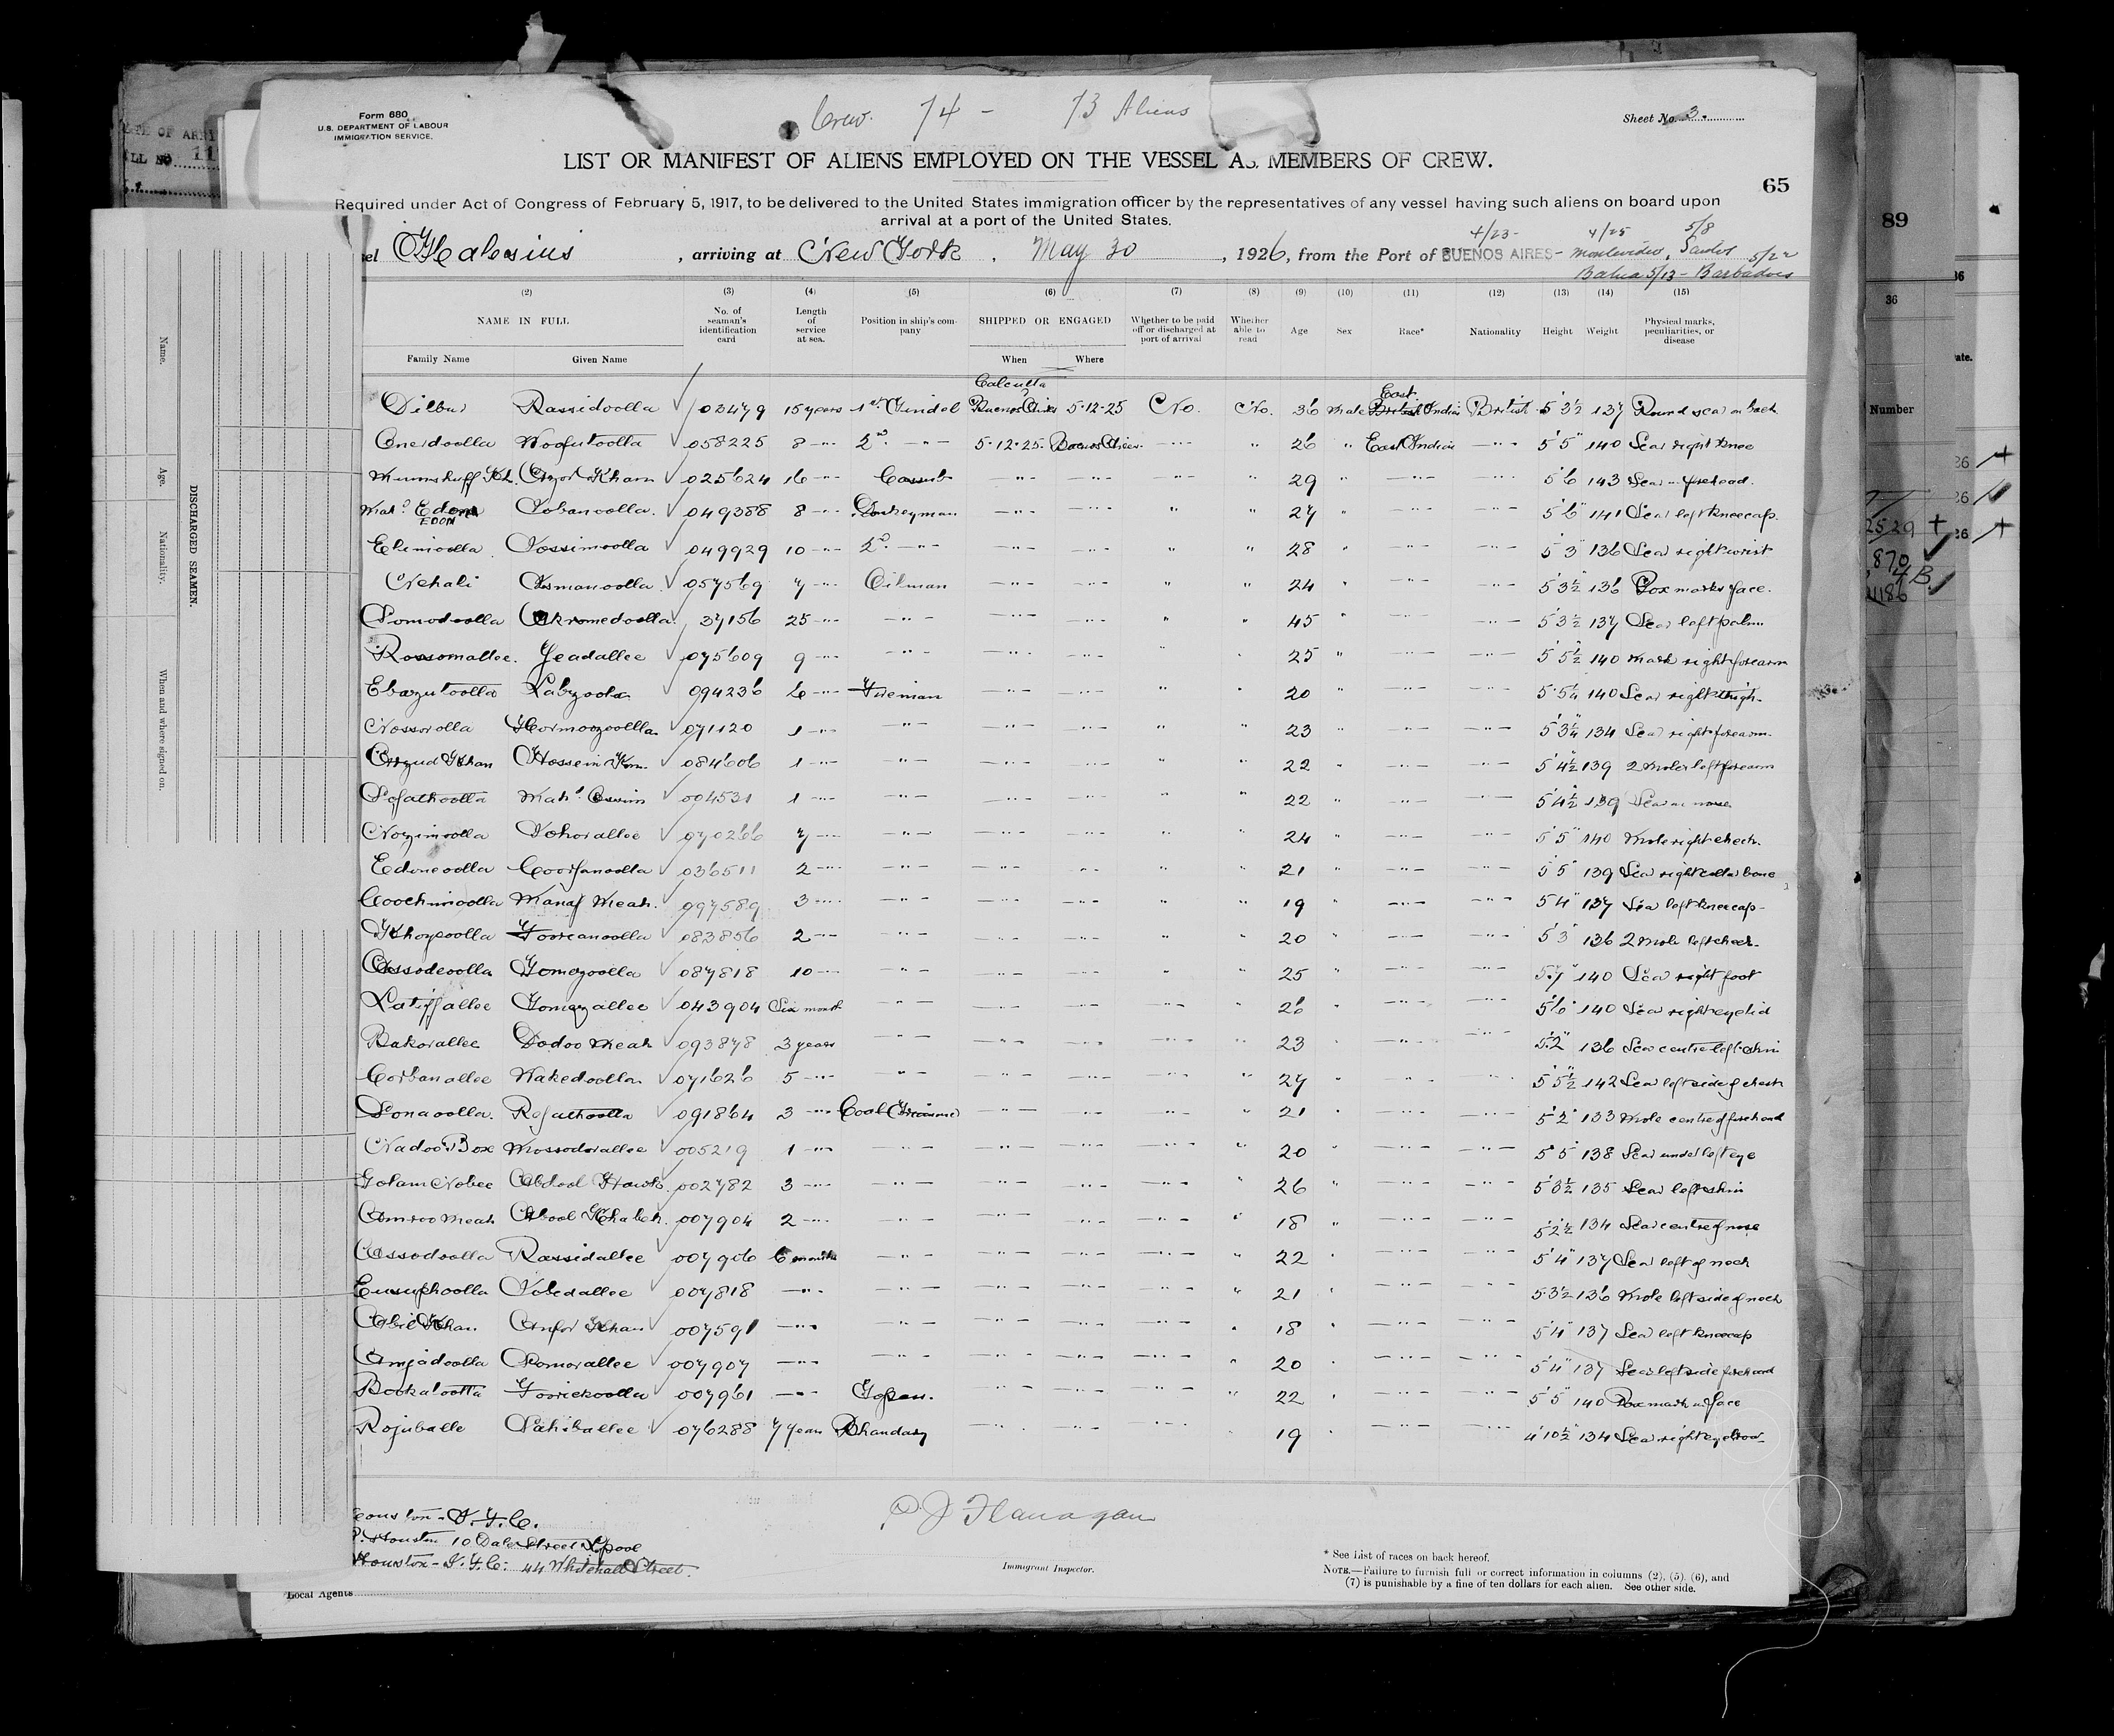 Form 680
U.S. DEPARTMENT OF LABOUR
IMMIGRATION SERVICE.
Crew. 74 - 73 Aliens
Sheet No. 3.
LIST OR MANIFEST OF ALIENS EMPLOYED ON THE VESSEL AS MEMBERS OF CREW.
65
Required under Act of Congress of February 5, 1917, to be delivered to the United States immigration officer by the representatives of any vessel having such aliens on board upon
arrival at a port of the United States.
4/23- 4/25 5/8
el Halesius, arriving at New York, May 30, 1926, from the Port of BUENOS AIRES- Montevideo, Santos 5/22
Bahia 5/13 - Barbados
(2) (3) (4) (5) (6) (7) (8) (9) (10) (11) (12) (13) (14) (15)
NAME IN FULL No. of seaman's identification card Length of service at sea. Position in ship's company SHIPPED OR ENGAGED Whether to be paid off or discharged at port of arrival Whether able to read Age Sex Race* Nationality Height Weight Physical marks, peculiarities, or disease
Family Name Given Name When Where
Calcutta East
Dilbur Rassidoolla 103479 15 years 1st Tindel Buenos Aires 5-12-25 No. No. 36 male British Indian British 5'3½ 137 Round scar on back
Oneidoolla Woofutoolla 058225 8 -"- 2nd -"- 5-12-25. Buenos Aires -"- " 26 " East Indian -"- 5'5" 140 Scar right knee
025624 16 -"- Cassub -"- -"- " " 29 " -"- -"- 5'6 143 Scar forehead.
Mahd Edon Sobanoolla. 049388 8 -"- Donkeyman -"- -"- " " 27 " -"- -"- 5'6" 141 Scar left kneecap.
EDON
Elimoolla Vossimoolla 049929 10 -"- 2nd -"- -"- -"- " " 28 " -"- -"- 5'3" 136 Scar right wrist
Nehali Osmanoolla 057569 7 -"- Oilman -"- -"- " " 24 " -"- -"- 5'3½ 136 Pox marks face.
Somodoolla Akromedoolla 37156 25 -"- -"- -"- -"- " " 45 " -"- -"- 5'3½ 137 Scar left palm
Rossomallee. Jeadallee 075609 9 -"- -"- -"- -"- " " 25 " -"- -"- 5'5½ 140 Mark right forearm
Ebazutoolla Labzoola 094236 6 -"- Fireman -"- -"- " " 20 " -"- -"- 140 Scar right thigh.
Nossoroolla Hormoozoollla 071120 1 -"- -"- -"- -"- " " 23 " -"- -"- 134 Scar right forearm.
Khan Hossein Kn. 084606 1 -"- -"- -"- -"- " " 22 " -"- -"- 5'4½ 139 2 moles left forearm
Sofathoolla Mahd. 004531 1 -"- -"- -"- -"- " " 22 " -"- -"- 5'4½ 139 Scar on nose
Nozimoolla Johorallee 070266 7 -"- -"- -"- -"- " " 24 " -"- -"- 5'5" 140 Mole right cheek.
Edoneoolla Coorfanoolla 036511 2 -"- -"- -"- -"- " " 21 " -"- -"- 5'5" 139 Scar right collar bone
Coochimoolla Manaf Meah. 097589 3 -"- -"- -"- -"- " " 19 " -"- -"- 5'4" 137 Scar left kneecap-
083856 2 -"- -"- -"- -"- " " 20 " -"- -"- 5'3" 136 2 Mole left cheek.
Assodeoolla Gomezoolla 087818 10 -"- -"- -"- -"- " " 25 " -"- -"- 5'7" 140 Scar right foot
Latiffallee Gomezallee 043904 Six month -"- -"- -"- " " 26 " -"- -"- 5'6" 140 Scar right eyelid
Bakorallee Dodoo Meah 093878 3 years -"- -"- -"- " " 23 " -"- -"- 5'2" 136 Scar centre left shin
Corbanallee Wakedoolla 071626 5 -"- -"- -"- -"- " " 27 " -"- -"- 5'5½ 142 Scar left side of chest
Sonaoolla. Rofathoolla 091864 3 -"- Coal Trimmer -"- -"- -"- " 21 " -"- -"- 5'2" 133 Mole centre of forehead
Nadoo Box Mossodorallee 005219 1 -"- -"- -"- -"- -"- " 20 " -"- -"- 5'5 138 Scar under left eye
Golam Nobee Abdool 002782 3 -"- -"- -"- -"- -"- " 26 " -"- -"- 5'3½ 135 Scar left shin
Amroo Meah Abool Khalek. 007904 2 -"- -"- -"- -"- -"- " 18 " -"- -"- 5'2½ 134 Scar centre of nose
Assodoolla Rassidallee 007906 6 months -"- -"- -"- -"- " 22 " -"- -"- 5'4" 137 Scar left of neck
Eusuphoolla Vobedallee 007818 -"- -"- -"- -"- -"- " 21 " -"- -"- 5'3½ 136 Mole left side of neck
Abil Khan Khan 007591 -"- -"- -"- -"- -"- " 18 " -"- -"- 5'4" 137 Scar left kneecap
Amjadoolla Somorallee 007907 -"- -"- -"- -"- -"- " 20 " -"- -"- 5'4" 137 Scar left side forehead
Bookatoolla 007961 -"- Topan. -"- -"- -"- " 22 " -"- -"- 5'5" 140 Pox mark on face
Rojuballe Sahiballee 076288 7 years Bhandary -"- -"- -"- 19 " -"- -"- 4'10½ 134 Scar right eyebrow
ouston
P. Houston 10 Dale Street L'pool
Houston 44 Whitehall Street
P J Flanagan
Immigrant Inspector.
Local Agents
* See List of races on back hereof.
NOTE.—Failure to furnish full or correct information in columns (2), (5), (6), and
(7) is punishable by a fine of ten dollars for each alien. See other side.
DISCHARGED SEAMEN.
Name.
Age.
Nationality.
When and where signed on.
89
36
Number
2529
870